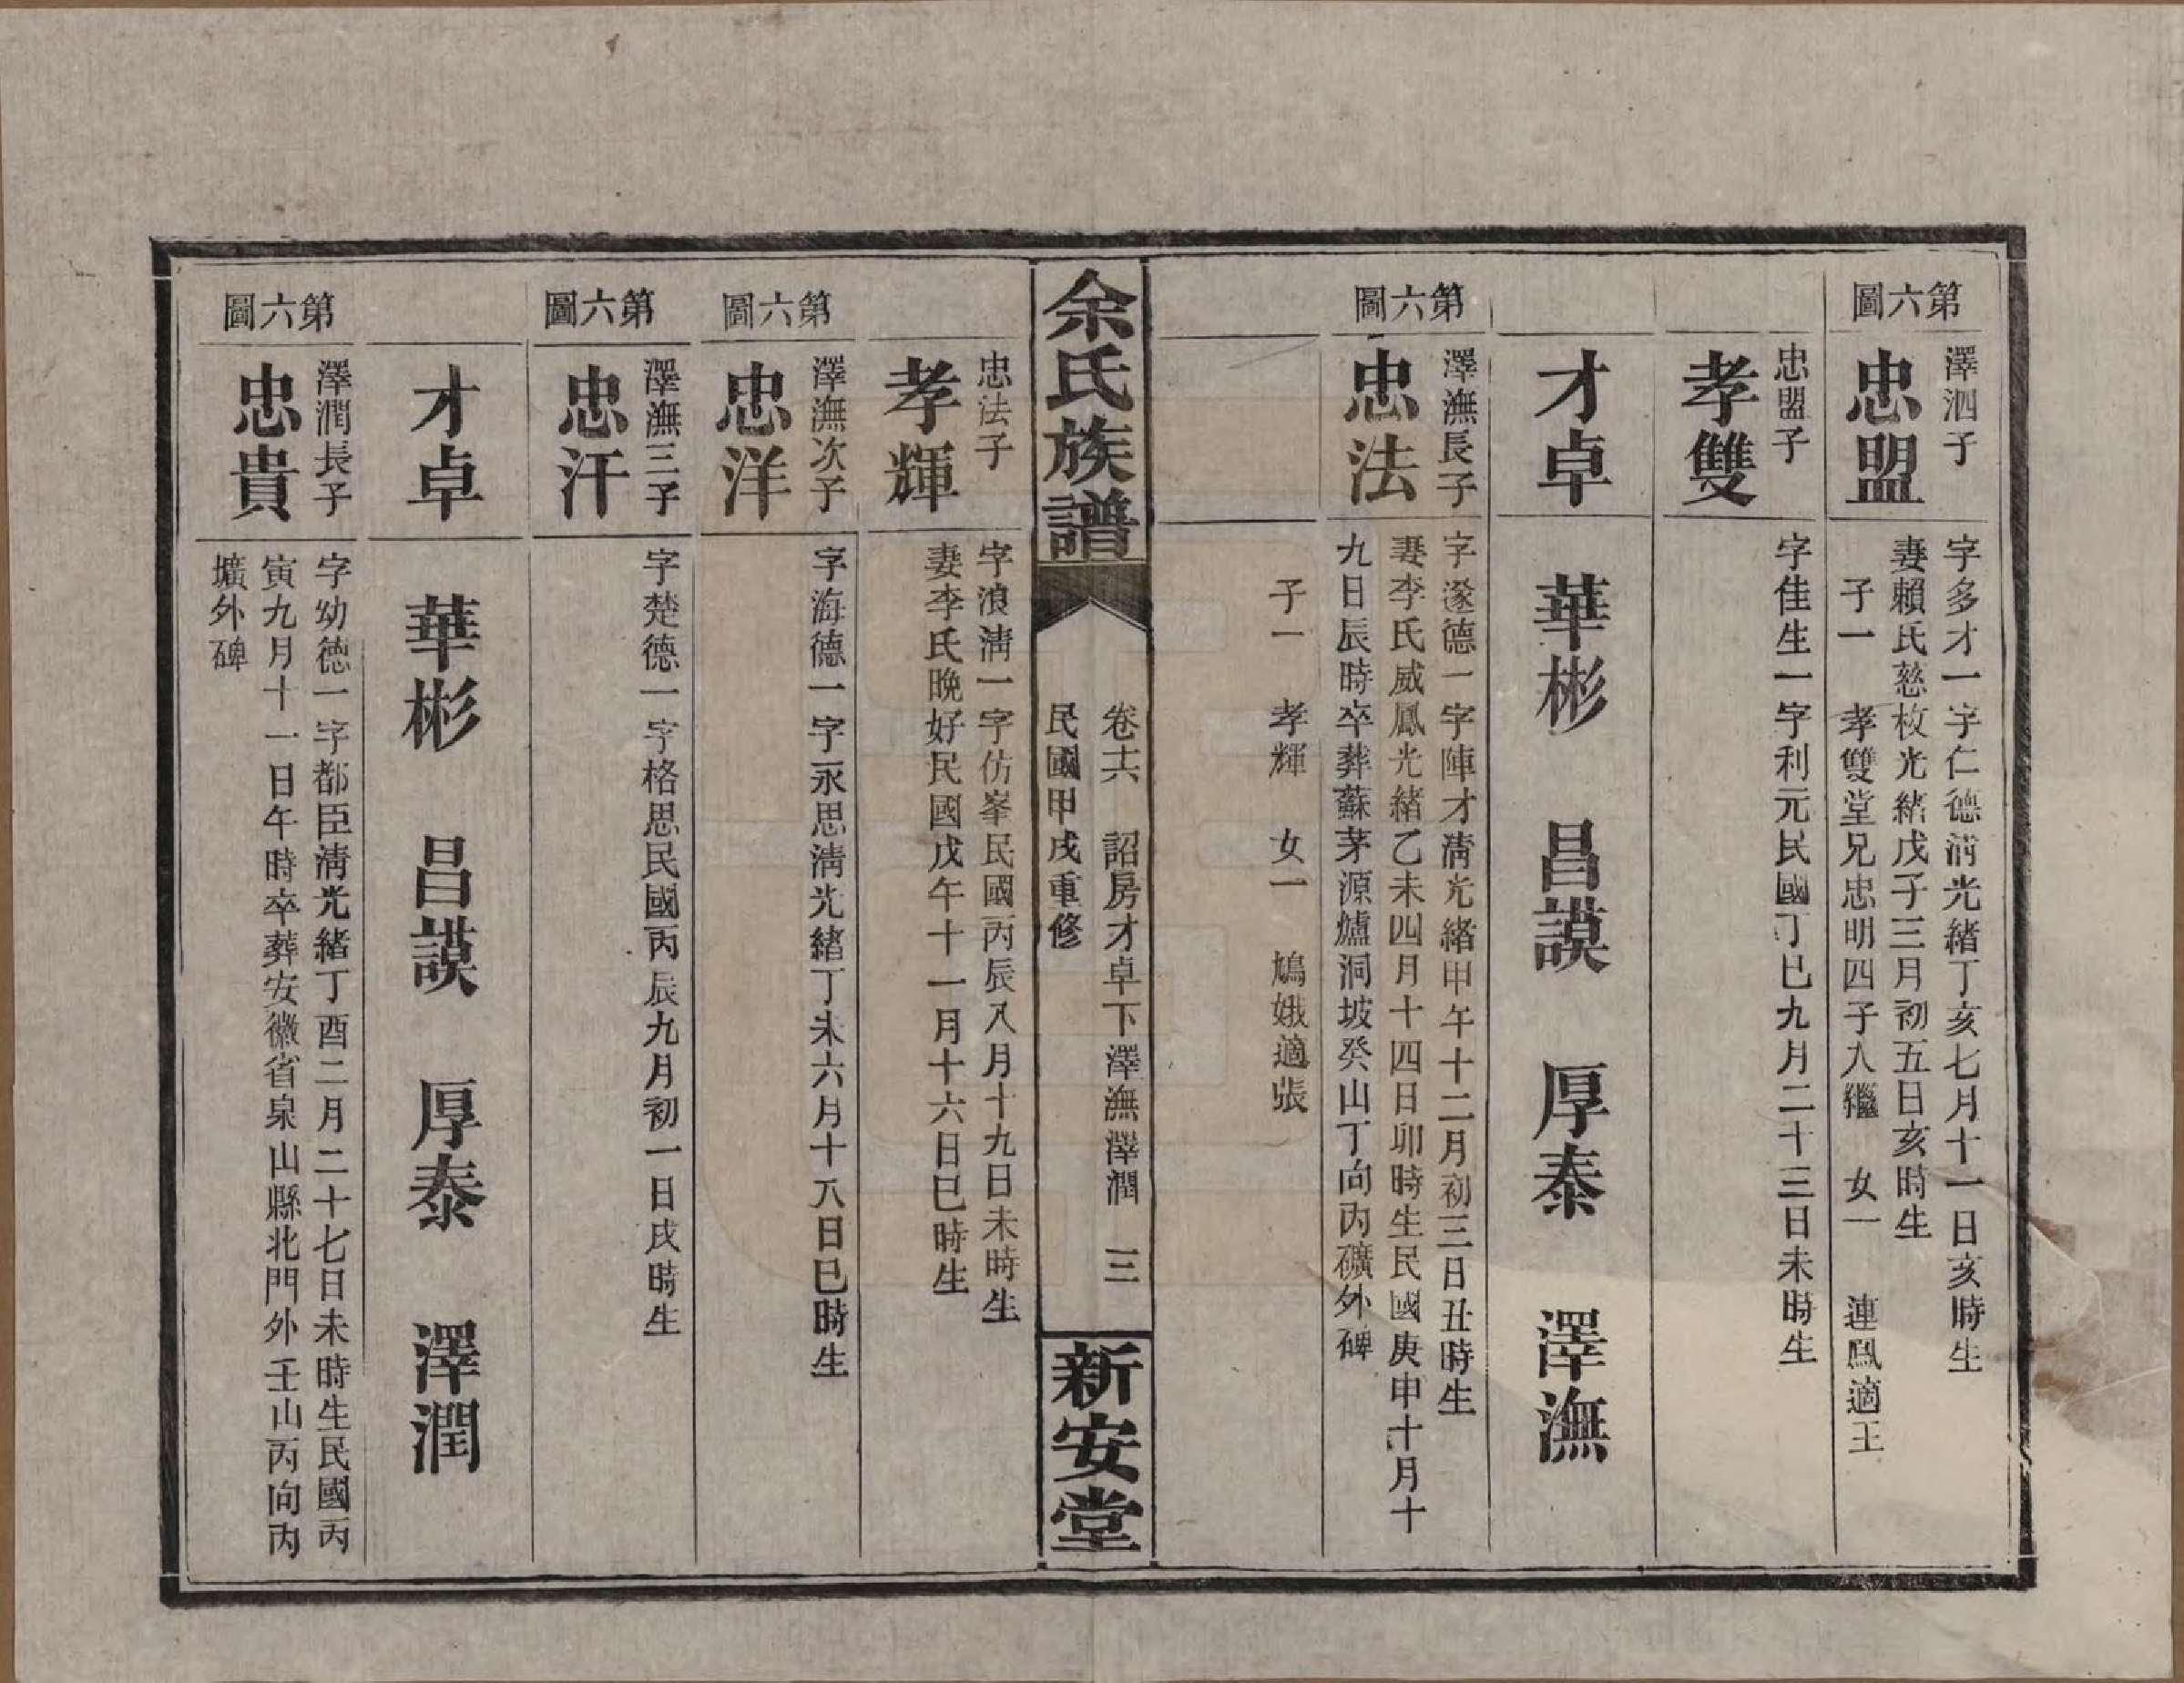 第六圖
澤泗子
忠盟
字多才一字仁德清光緒丁亥七月十一日亥時生
妻賴氏慈枚光緒戊子三月初五日亥時生
子一　孝雙堂兄忠明四子入繼　女一　連鳳適王
忠盟子
孝雙
字佳生一字利元民國丁巳九月二十三日未時生
才卓　華彬　昌謨　厚泰　澤潕
第六圖
澤潕長子
忠法
字遂德一字陣才清光緒甲午十二月初三日丑時生
妻李氏威鳳光緒乙未四月十四日卯時生民國庚申十月十
九日辰時卒葬蘇茅源爐洞坡癸山丁向內礦外碑
子一　孝輝　女一　鳩娥適張
余氏族譜
卷十六　詔房才卓下澤潕澤潤　三
民國甲戌重修
新安堂
忠法子
孝輝
字浪清一字仿峯民國丙辰八月十九日未時生
妻李氏晚好民國戊午十一月十六日巳時生
第六圖
澤潕次子
忠洋
字海德一字永思清光緒丁未六月十八日巳時生
第六圖
澤潕三子
忠汗
字楚德一字格思民國丙辰九月初一日戌時生
才卓　華彬　昌謨　厚泰　澤潤
第六圖
澤潤長子
忠貴
字幼德一字都臣清光緒丁酉二月二十七日未時生民國丙
寅九月十一日午時卒葬安徽省泉山縣北門外壬山丙向內
壙外碑